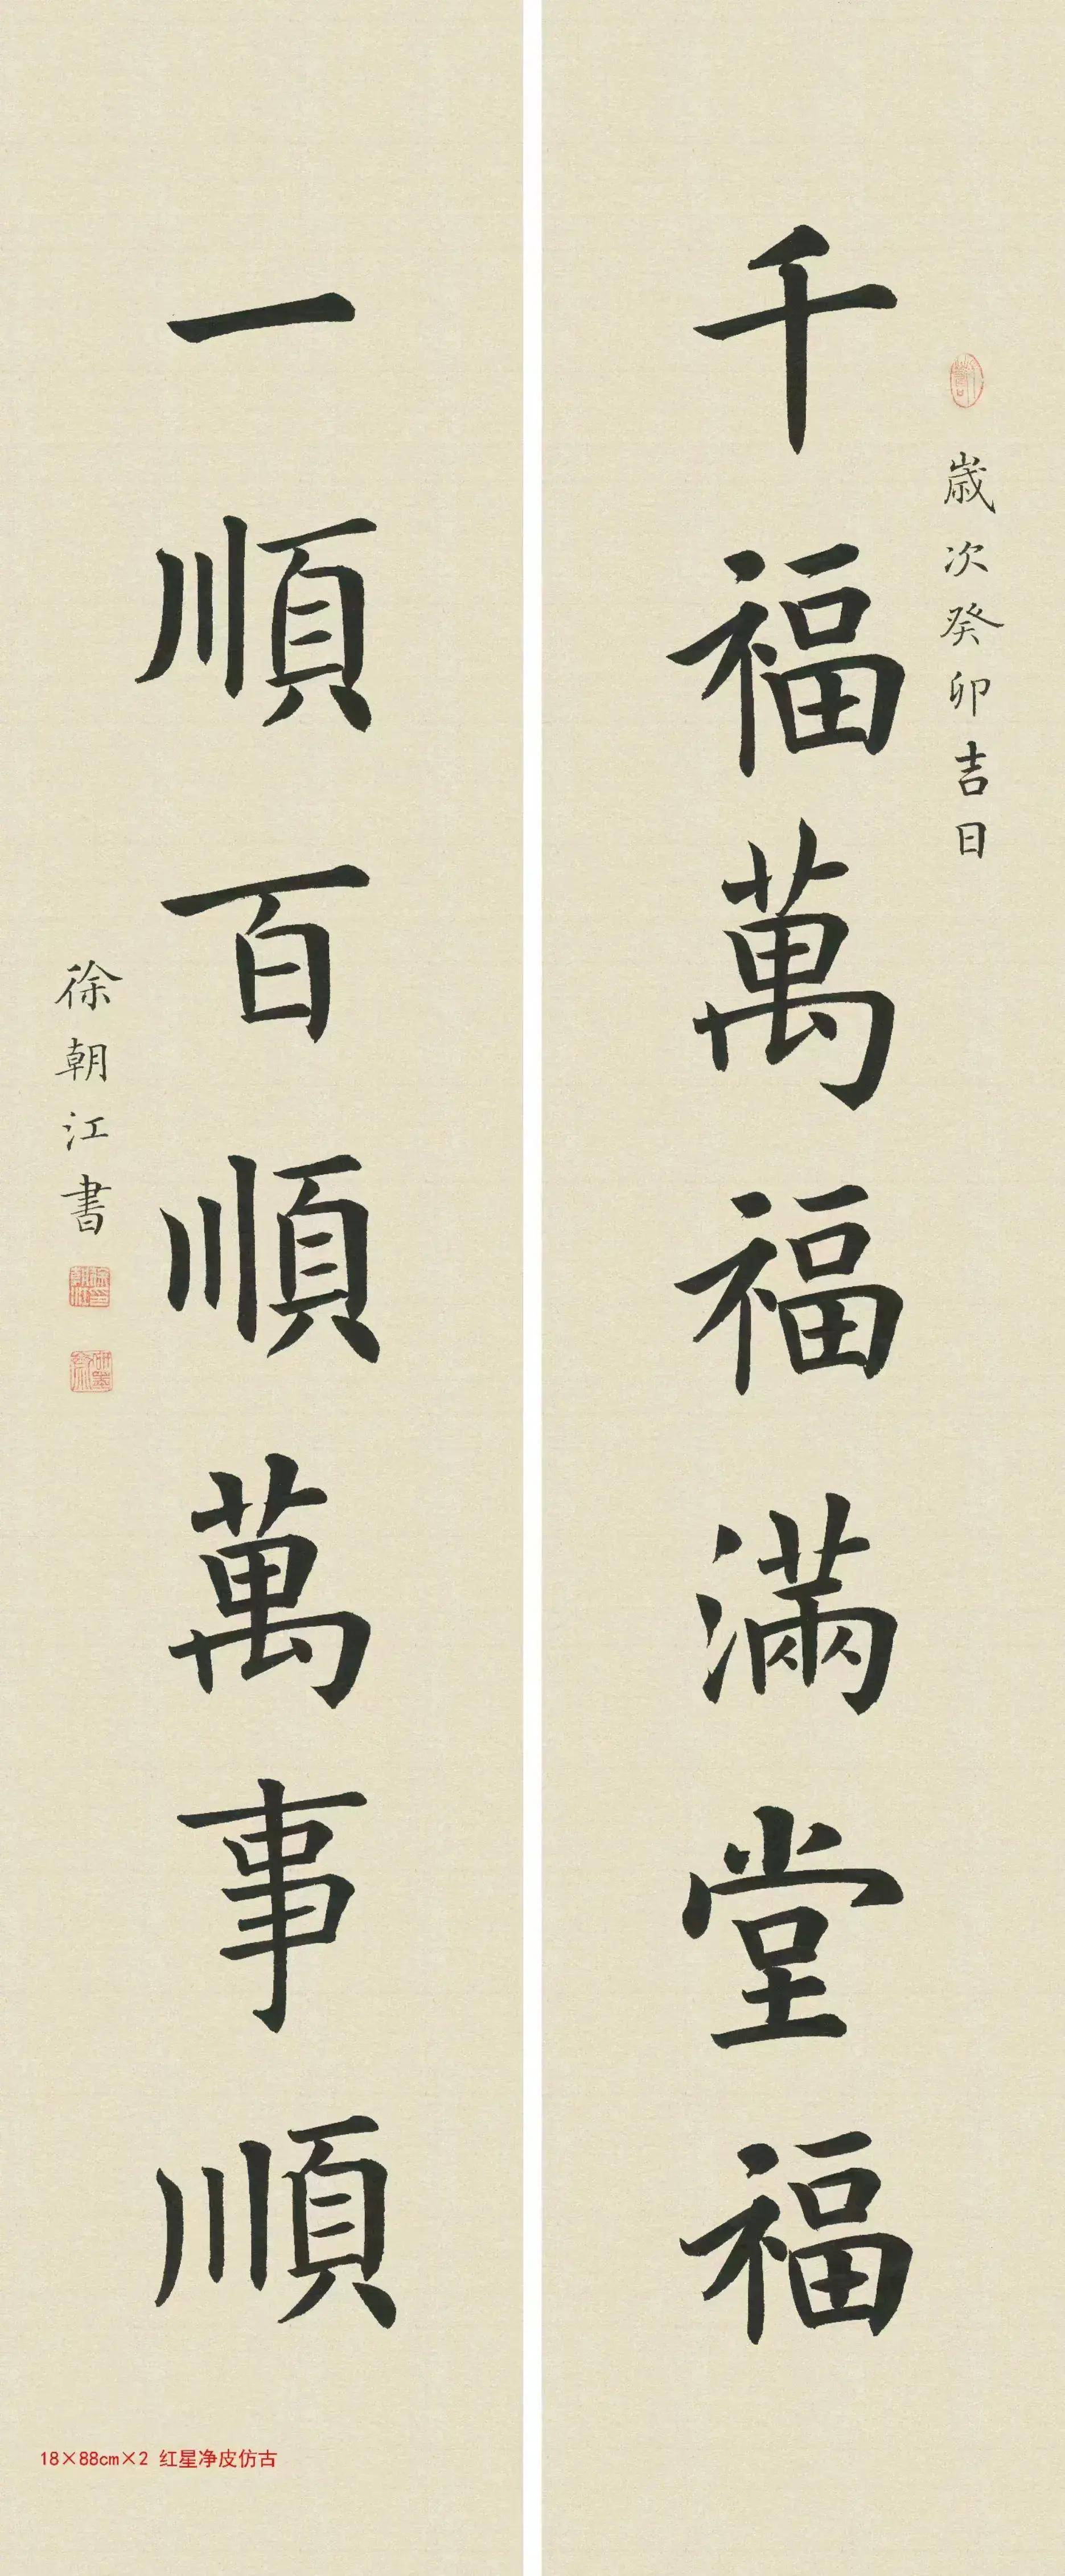 歲次癸卯吉日
千福萬福滿堂福
一順百順萬事順
徐朝江書
18×88cm×2 红星净皮仿古